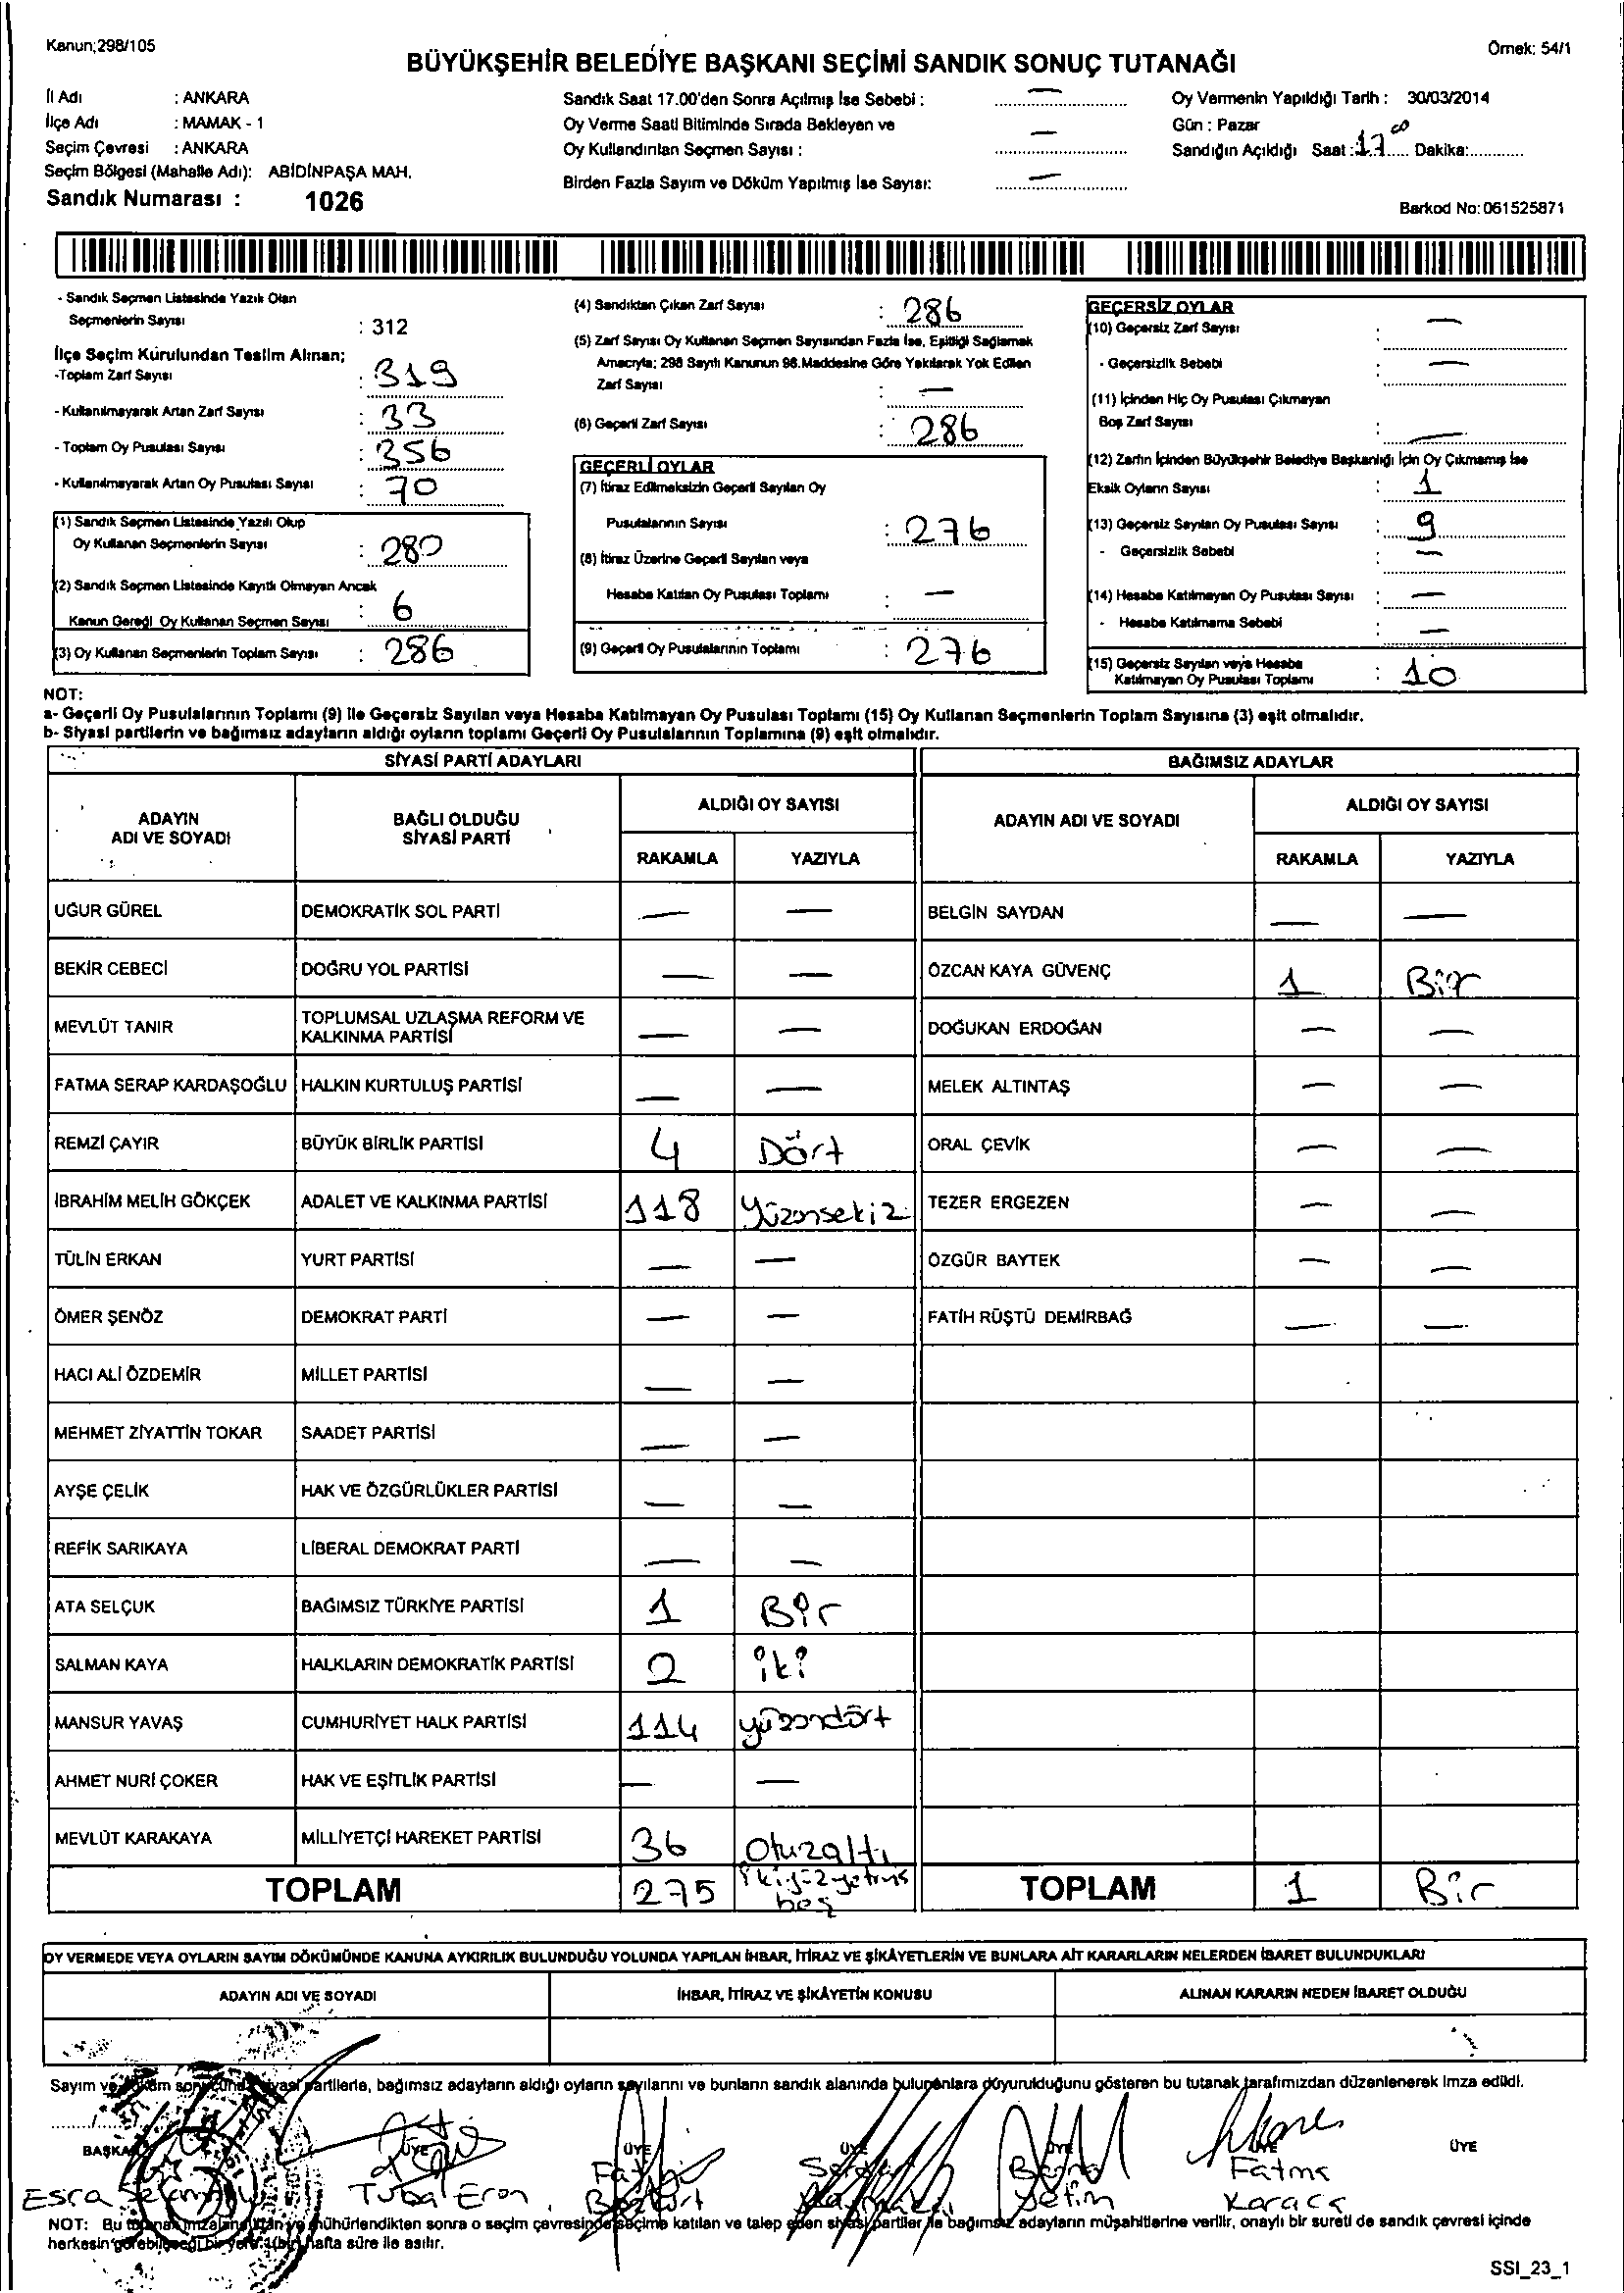 Kanun;298/105
Örnek: 54/1
BÜYÜKŞEHİR BELEDİYE BAŞKANI SEÇİMİ SANDIK SONUÇ TUTANAĞI
İl Adı : ANKARA
İlçe Adı : MAMAK - 1
Seçim Çevresi : ANKARA
Seçim Bölgesi (Mahalle Adı): ABİDİNPAŞA MAH.
Sandık Numarası : 1026
Sandık Saat 17.00'den Sonra Açılmış İse Sebebi : —
Oy Verme Saati Bitiminde Sırada Bekleyen ve
Oy Kullandırılan Seçmen Sayısı : —
Birden Fazla Sayım ve Döküm Yapılmış İse Sayısı: —
Oy Vermenin Yapıldığı Tarih : 30/03/2014
Gün : Pazar
Sandığın Açıldığı Saat :17 00 Dakika:
Barkod No:061525871
- Sandık Seçmen Listesinde Yazılı Olan
Seçmenlerin Sayısı : 312
İlçe Seçim Kurulundan Teslim Alınan;
-Toplam Zarf Sayısı : 319
- Kullanılmayarak Artan Zarf Sayısı : 33
- Toplam Oy Pusulası Sayısı : 356
- Kullanılmayarak Artan Oy Pusulası Sayısı : 70
(1) Sandık Seçmen Listesinde Yazılı Olup
Oy Kullanan Seçmenlerin Sayısı : 280
(2) Sandık Seçmen Listesinde Kayıtlı Olmayan Ancak
Kanun Gereği Oy Kullanan Seçmen Sayısı : 6
(3) Oy Kullanan Seçmenlerin Toplam Sayısı : 286
(4) Sandıktan Çıkan Zarf Sayısı : 286
(5) Zarf Sayısı Oy Kullanan Seçmen Sayısından Fazla İse, Eşitliği Sağlamak
Amacıyla; 298 Sayılı Kanunun 98.Maddesine Göre Yakılarak Yok Edilen
Zarf Sayısı : —
(6) Geçerli Zarf Sayısı : 286
GEÇERLİ OYLAR
(7) İtiraz Edilmeksizin Geçerli Sayılan Oy
Pusulalarının Sayısı : 276
(8) İtiraz Üzerine Geçerli Sayılan veya
Hesaba Katılan Oy Pusulası Toplamı : —
(9) Geçerli Oy Pusulalarının Toplamı : 276
GEÇERSİZ OYLAR
(10) Geçersiz Zarf Sayısı : —
- Geçersizlik Sebebi : —
(11) İçinden Hiç Oy Pusulası Çıkmayan
Boş Zarf Sayısı : —
(12) Zarfın İçinden Büyükşehir Belediye Başkanlığı İçin Oy Çıkmamış İse
Eksik Oyların Sayısı : 1
(13) Geçersiz Sayılan Oy Pusulası Sayısı : 9
- Geçersizlik Sebebi : —
(14) Hesaba Katılmayan Oy Pusulası Sayısı : —
- Hesaba Katılmama Sebebi : —
(15) Geçersiz Sayılan veya Hesaba
Katılmayan Oy Pusulası Toplamı : 10
NOT:
a- Geçerli Oy Pusulalarının Toplamı (9) ile Geçersiz Sayılan veya Hesaba Katılmayan Oy Pusulası Toplamı (15) Oy Kullanan Seçmenlerin Toplam Sayısına (3) eşit olmalıdır.
b- Siyasi partilerin ve bağımsız adayların aldığı oyların toplamı Geçerli Oy Pusulalarının Toplamına (9) eşit olmalıdır.
SİYASİ PARTİ ADAYLARI
BAĞIMSIZ ADAYLAR
ADAYIN ADI VE SOYADI
BAĞLI OLDUĞU SİYASİ PARTİ
ALDIĞI OY SAYISI
ADAYIN ADI VE SOYADI
ALDIĞI OY SAYISI
RAKAMLA YAZIYLA RAKAMLA YAZIYLA
UĞUR GÜREL DEMOKRATİK SOL PARTİ — — BELGİN SAYDAN — —
BEKİR CEBECİ DOĞRU YOL PARTİSİ — — ÖZCAN KAYA GÜVENÇ 1 Bir
MEVLÜT TANIR TOPLUMSAL UZLAŞMA REFORM VE KALKINMA PARTİSİ — — DOĞUKAN ERDOĞAN — —
FATMA SERAP KARDAŞOĞLU HALKIN KURTULUŞ PARTİSİ — — MELEK ALTINTAŞ — —
REMZİ ÇAYIR BÜYÜK BİRLİK PARTİSİ 4 Dört ORAL ÇEVİK — —
İBRAHİM MELİH GÖKÇEK ADALET VE KALKINMA PARTİSİ 118 Yüzonsekiz TEZER ERGEZEN — —
TÜLİN ERKAN YURT PARTİSİ — — ÖZGÜR BAYTEK — —
ÖMER ŞENÖZ DEMOKRAT PARTİ — — FATİH RÜŞTÜ DEMİRBAĞ — —
HACI ALİ ÖZDEMİR MİLLET PARTİSİ — —
MEHMET ZİYATTİN TOKAR SAADET PARTİSİ — —
AYŞE ÇELİK HAK VE ÖZGÜRLÜKLER PARTİSİ — —
REFİK SARIKAYA LİBERAL DEMOKRAT PARTİ — —
ATA SELÇUK BAĞIMSIZ TÜRKİYE PARTİSİ 1 Bir
SALMAN KAYA HALKLARIN DEMOKRATİK PARTİSİ 2 iki
MANSUR YAVAŞ CUMHURİYET HALK PARTİSİ 114 yüzondört
AHMET NURİ ÇOKER HAK VE EŞİTLİK PARTİSİ — —
MEVLÜT KARAKAYA MİLLİYETÇİ HAREKET PARTİSİ 36 Otuzaltı
TOPLAM 275 ikiyüzyetmiş beş TOPLAM 1 Bir
OY VERMEDE VEYA OYLARIN SAYIM DÖKÜMÜNDE KANUNA AYKIRILIK BULUNDUĞU YOLUNDA YAPILAN İHBAR, İTİRAZ VE ŞİKÂYETLERİN VE BUNLARA AİT KARARLARIN NELERDEN İBARET BULUNDUKLARI
ADAYIN ADI VE SOYADI İHBAR, İTİRAZ VE ŞİKÂYETİN KONUSU ALINAN KARARIN NEDEN İBARET OLDUĞU
Sayım ve döküm sonucunda siyasi partilerle, bağımsız adayların aldığı oyların sayılarını ve bunların sandık alanında bulunanlara duyurulduğunu gösteren bu tutanak tarafımızdan düzenlenerek imza edildi.
BAŞKAN ÜYE ÜYE ÜYE ÜYE ÜYE ÜYE
Esra Tuba Eren Fatih Bozkurt Serdar Yetim Fatma Karaca
NOT: Bu tutanak imzalandıktan ve mühürlendikten sonra o seçim çevresinde seçime katılan ve talep eden siyasi partiler ile bağımsız adayların müşahitlerine verilir, onaylı bir sureti de sandık çevresi içinde
herkesin görebileceği bir yere 1 (bir) hafta süre ile asılır.
SSI_23_1